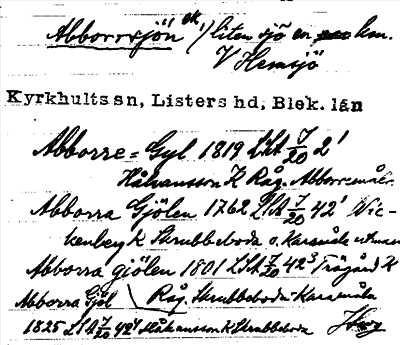 Abborrsjön ek,) liten sjö en km.
V Hemsjö
Kyrkhults sn, Listers hd, Blek. län
Abborre=Gyl 1819 LSA 7/20 2¹
Håkansson K Råg. Abborremåla
Abborra Gjölen 1762 LSA 7/20 42¹ Wic-
kenberg K Skrubbeboda o. Karamåla
Abborra gjölen 1801 LSA 7/20 42³ Trägård K
Abborra Gjöl Råg. Skrubbeboda-Karamåla
1825 LSA 7/20 42⁴ Håkansson K Skrubbeboda